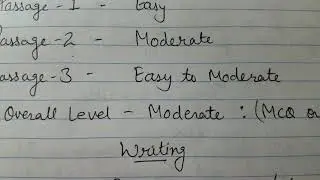 Passage - 1 - Easy
assage - 2 - Moderate
assage - 3 - Easy to Moderate
Overall Level - Moderate : (MCQ
Writing